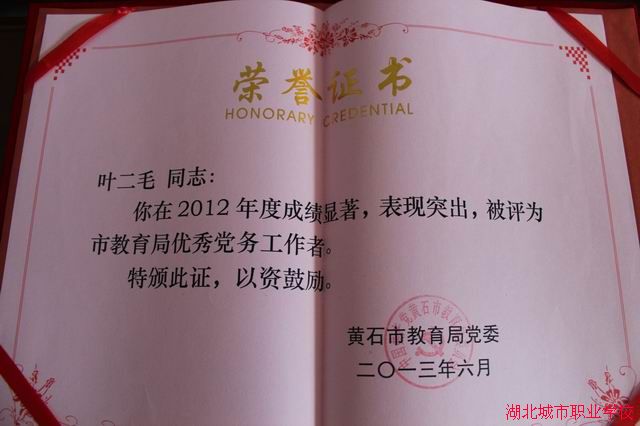 荣誉证书
HONORARY CREDENTIAL
叶二毛 同志：
你在2012年度成绩显著，表现突出，被评为
市教育局优秀党务工作者。
特颁此证，以资鼓励。
黄石市教育局党委
二〇一三年六月
湖北城市职业学校